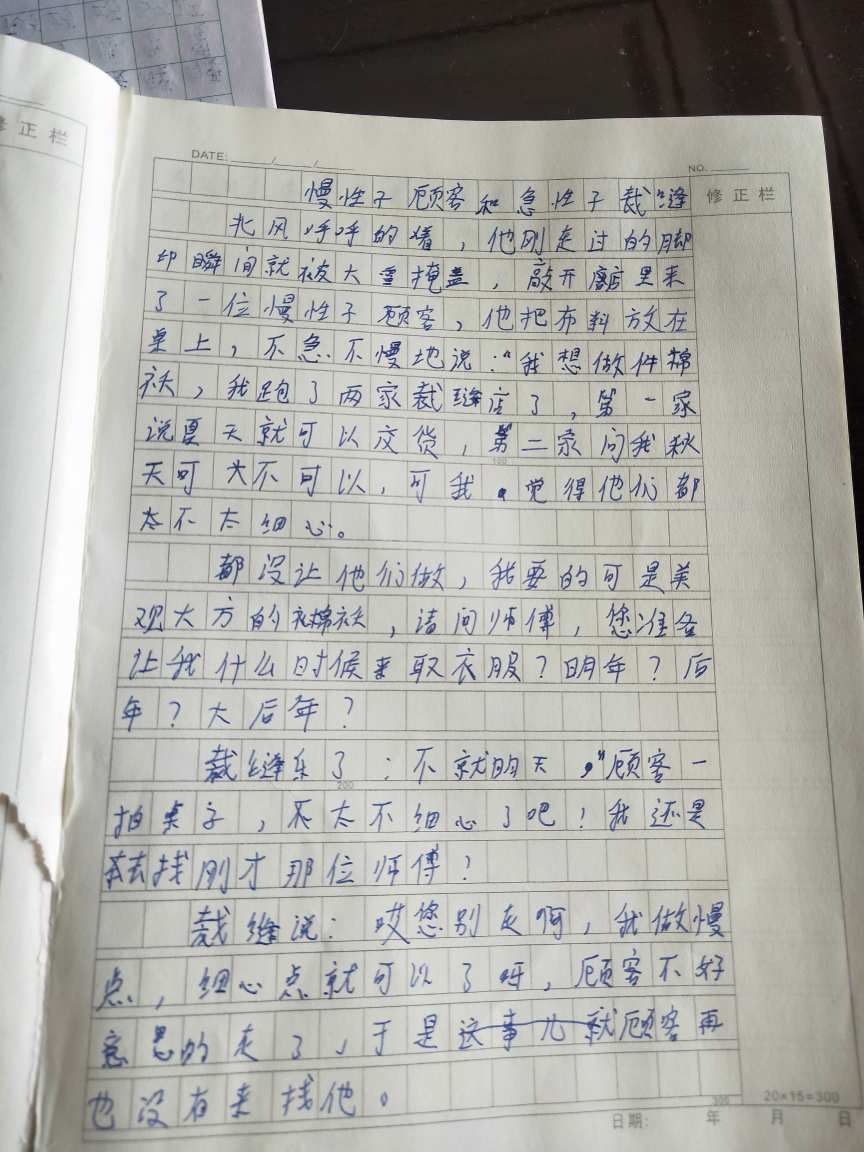 修正栏
DATE: / /
NO.
修正栏
慢性子顾客和急性子裁缝
北风呼呼的着，他刚走过的脚
印瞬间就被大雪掩盖，敲开店里来
了一位慢性子顾客，他把布料放在
桌上，不急不慢地说："我想做件棉
袄，我跑了两家裁缝店了，第一家
说夏天就可以交货，第二家问我秋
天可大不可以，可我觉得他们都
太不太细心。
都没让他们做，我要的可是美
观大方的棉袄，请问师傅，您准备
让我什么时候来取衣服？明年？后
年？大后年？
裁缝乐了：不就的天，"顾客一
100
200
拍桌子，太不细心了吧！我还是
去找刚才那位师傅！
裁缝说：哎您别走啊，我做慢
点，细心点就可以了呀，顾客不好
意思的走了，于是这事儿就顾客再
也没有来找他。
300
20×15=300
日期： 年 月 日